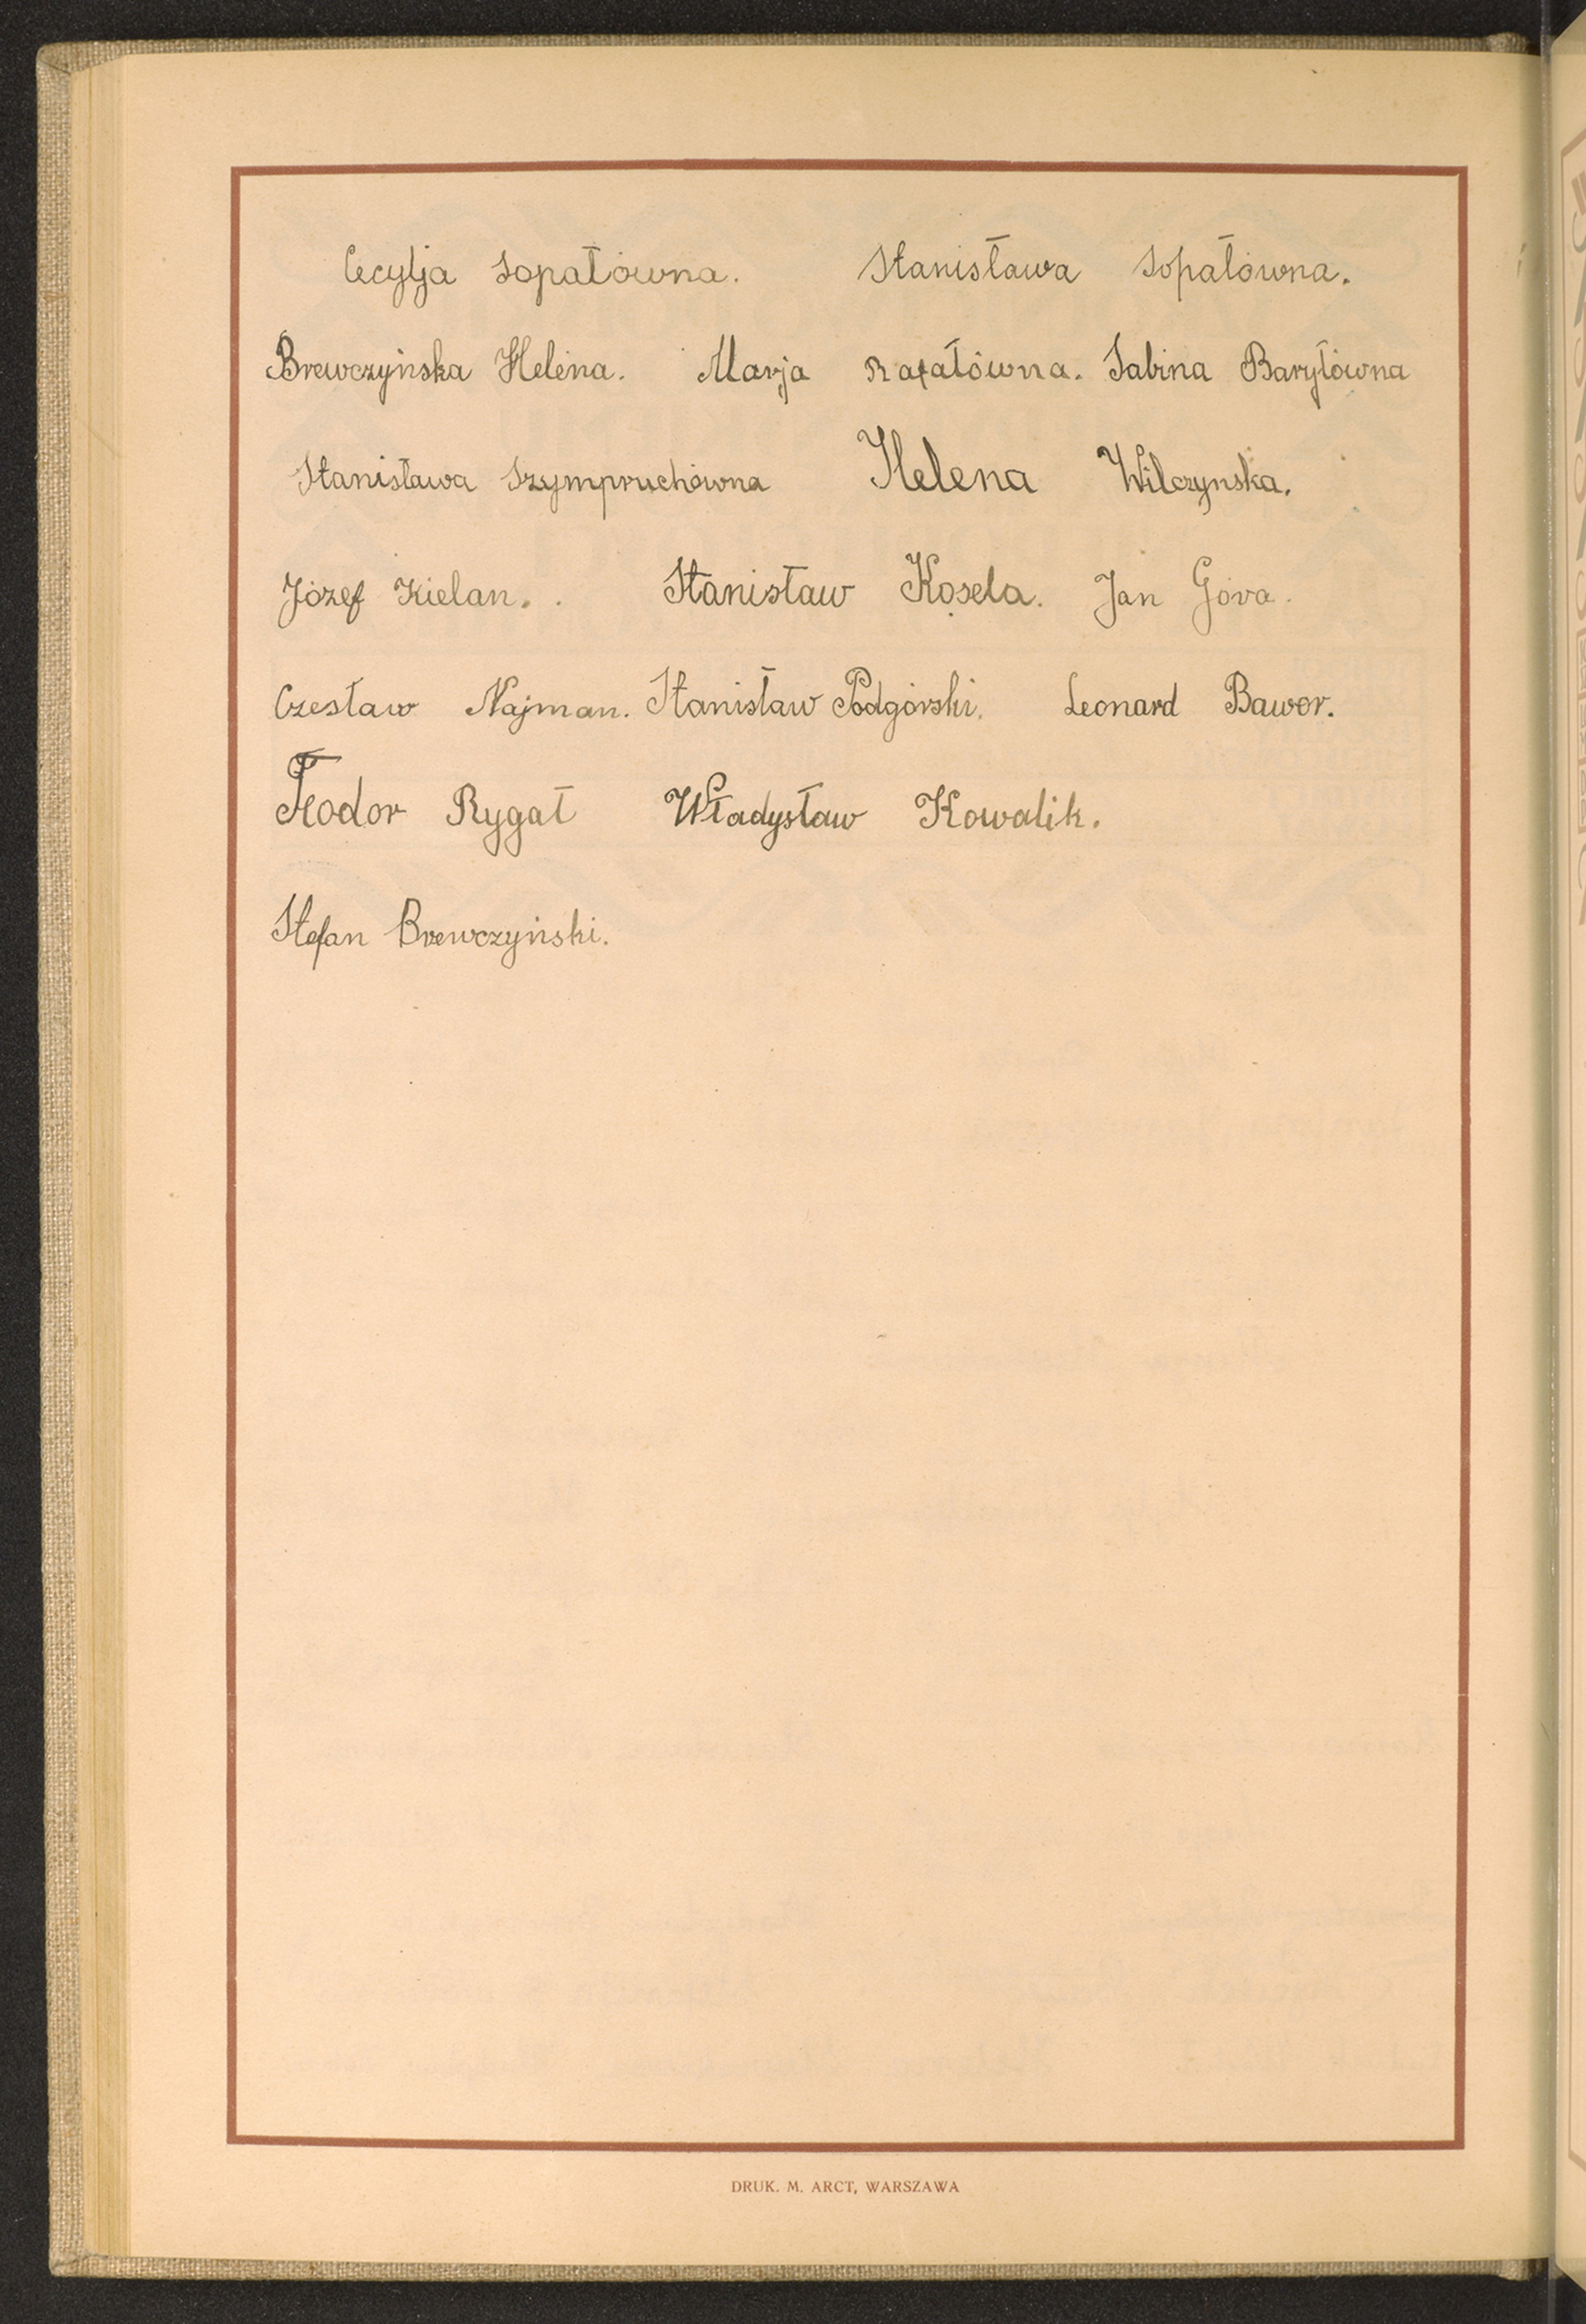 Cecylja Sopałówna. Stanisława Sopałówna.
Brewczyńska Helena. Marja Rafałówna. Sabina Baryłówna
Stanisława Szympruchówna Helena Wilczynska.
Józef Kielan. Stanisław Kosela. Jan Góra.
Czesław Najman. Stanisław Podgórski. Leonard Bawor.
Teodor Rygał Władysław Kowalik.
Stefan Brewczyński.
DRUK. M. ARCT, WARSZAWA